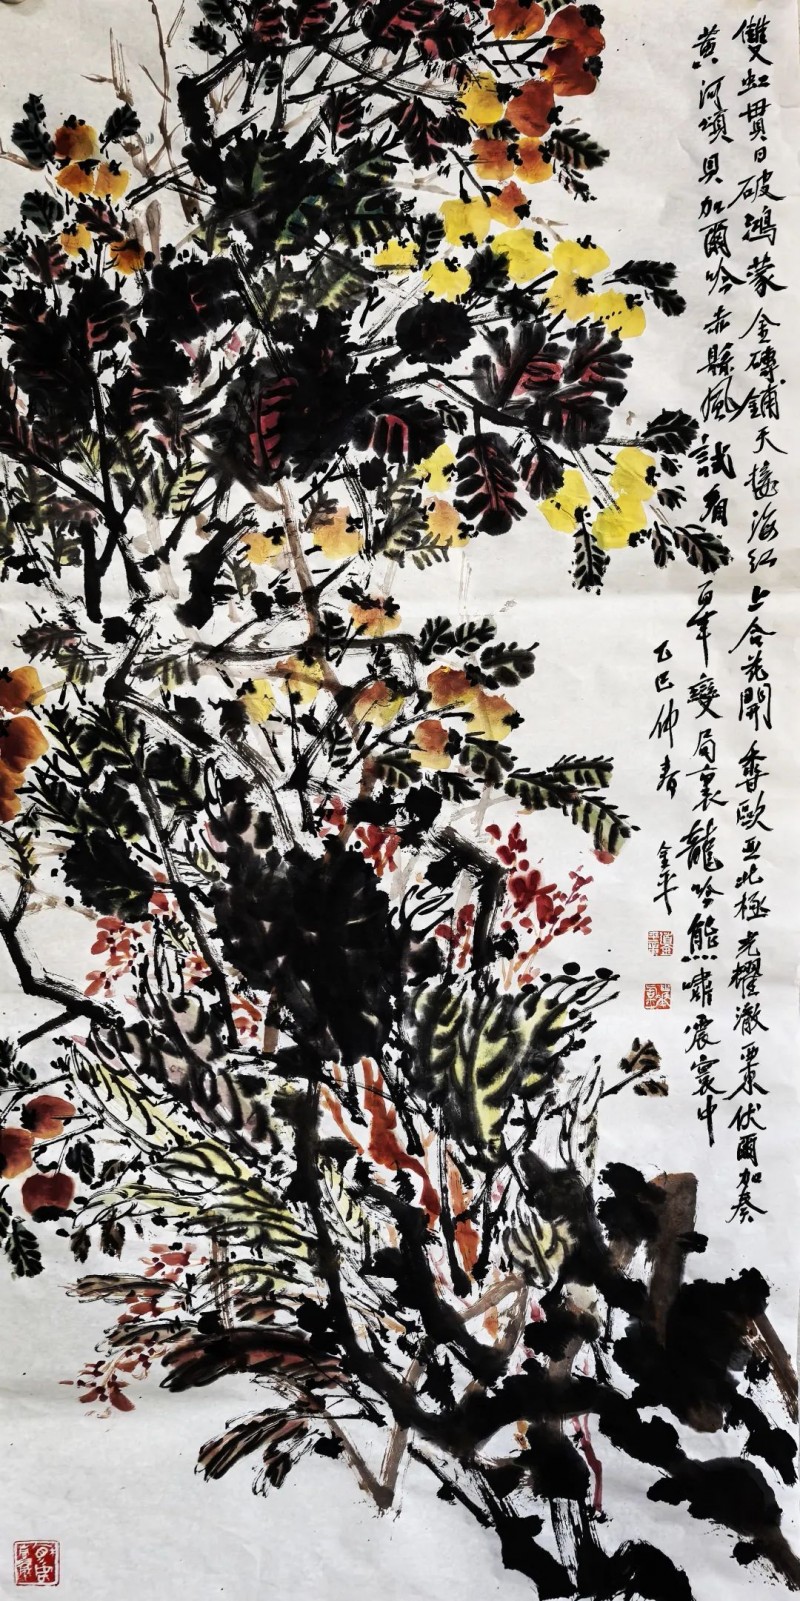 雙虹貫日破鴻蒙金磚鋪天接海紅上合花開香歐亞北極光耀澈西東伏爾加奏
黄河頌貝加爾吟赤縣風試看百年變局裏龍吟熊嘯震寰中
乙巳仲春
金平